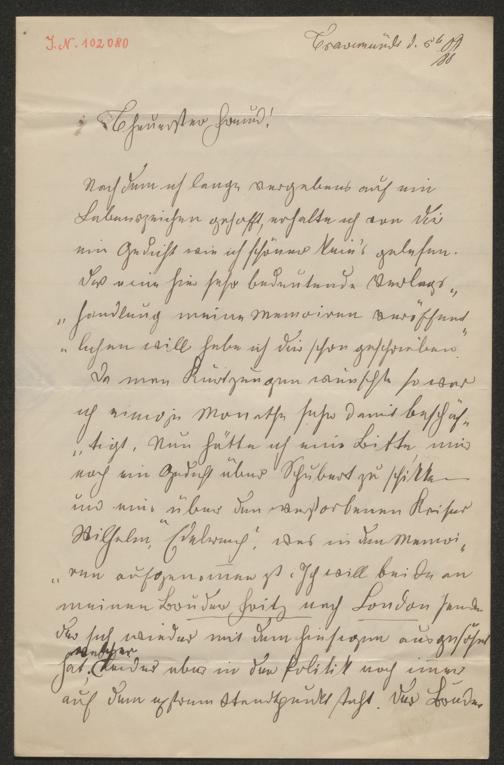 I.N. 102080
Travemünde d. 5ten 09/88
Theuerster Freund!
Nachdem ich lange vergebens auf ein
Lebenszeichen gehofft, erhalte ich von Dir
ein Gedicht wie ich schöner kein's gelesen.
Das eine hier sehr bedeutende Verlags„
„handlung meine Memoiren veröffent„
„lichen will habe ich Dir schon geschrieben.
Da man Kürzungen wünschte so war
ich einige Monathe sehr damit beschäf„
„tigt. Nun hätte ich eine Bitte, mir
noch ein Gedicht über Schubert zu schikken
und eins über den verstorbenen Kaiser
Wilhelm, was in den Memoi„
„ren aufgenommen ist. Ich will beide an
meinen Bruder Fritz nach London senden
der sich wieder mit dem hiesigen ausgesöhnt
hat. welcher leider aber in der Politik noch immer
auf dem extremen Standtpunkt steht. Der Bruder